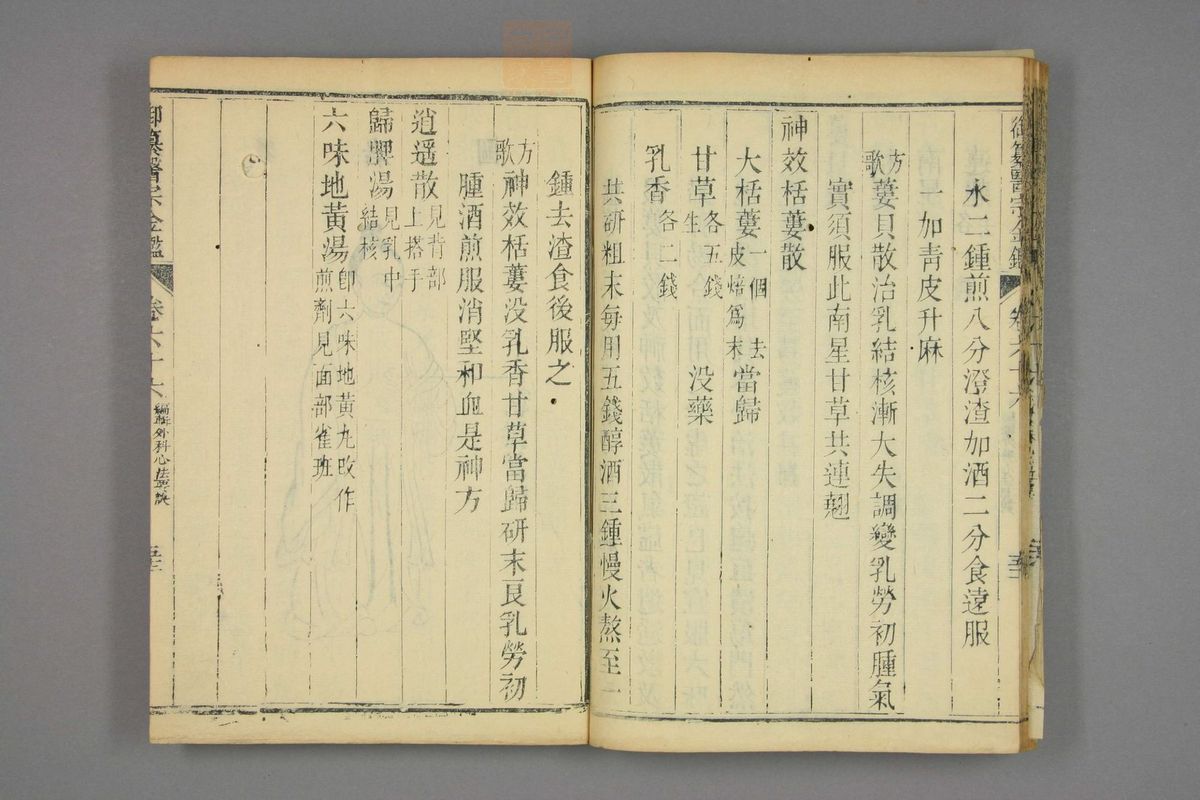 御纂醫宗金鑑
卷六十六
水二鍾煎八分澄渣加酒二分食遠服
一加青皮升麻
方歌
蔞貝散治乳結核漸大失調變乳勞初腫氣
實須服此南星甘草共連翹
神效栝蔞散
大栝蔞一個去皮焙爲末當歸
甘草生各五錢没藥
乳香各二錢
共研粗末每用五錢醇酒三鍾慢火熬至一
鍾去渣食後服之
方歌
神效栝蔞没乳香甘草當歸研末良乳勞初
腫酒煎服消堅和血是神方
逍遥散見背部上搭手
歸脾湯見乳中結核
六味地黃湯卽六味地黃丸改作煎劑見面部雀班
御纂醫宗金鑑
卷六十六
編輯外科心法要訣